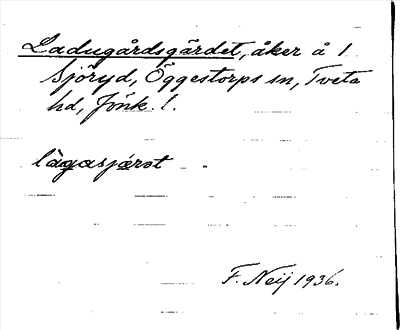 Ladugårdsgärdet, åker å 1
Sjöryd, Öggestorps sn, Tveta
hd, Jönk. l.
F. Neij 1936.